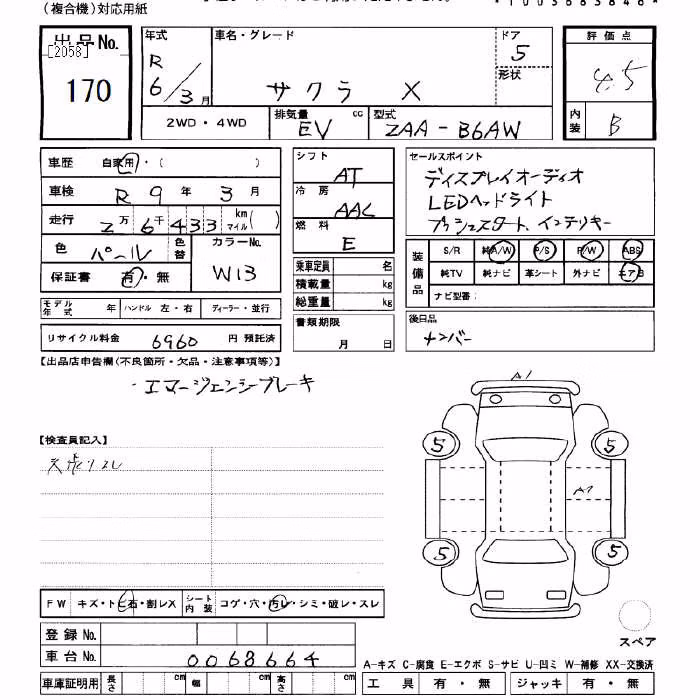 (複合機)対応用紙
出品No.
[2058]
170
年式
R
6/3月
車名・グレード
サクラ X
ドア
5
形状
評価点
4.5
内装
B
2WD・4WD
排気量
cc
EV
型式
ZAA-B6AW
車歴
自家用・( )
車検
R 9 年 3 月
走行
2万6千433
km
マイル( )
色
パール
色替
カラーNo.
W13
保証書
有・無
モデル年式
年
ハンドル 左・右
ディーラー・並行
リサイクル料金 6960 円 預託済
シフト
AT
冷房
AAC
燃料
E
乗車定員 名
積載量 kg
総重量 kg
書類期限
月 日
セールスポイント
ディスプレイオーディオ
LEDヘッドライト
プッシュスタート、インテリキー
装備品
S/R 純A/W P/S P/W ABS
純TV 純ナビ 革シート 外ナビ エアB
ナビ型番:
後日品
ナンバー
【出品店申告欄(不良箇所・欠品・注意事項等)】
・エマージェンシーブレーキ
【検査員記入】
A1
5
5
A1
5
5
スペア
FW キズ・トビ石・割レX
シート内装 コゲ・穴・汚レ・シミ・破レ・スレ
登録No.
車台No. 0068664
車庫証明用 長さ cm 幅 cm 高さ cm
A-キズ C-腐食 E-エクボ S-サビ U-凹ミ W-補修 XX-交換済
工具 有・無 ジャッキ 有・無